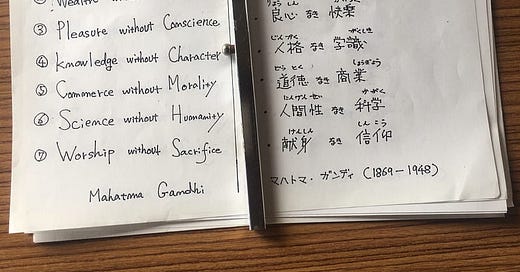 ② Wealth without
③ Pleasure without Conscience
④ Knowledge without Character
⑤ Commerce without Morality
⑥ Science without Humanity
⑦ Worship without Sacrifice
Mahatma Gandhi
りょうしん
・良心 なき 快楽
じんかく がくしき
・人格 なき 学識
どうとく しょうぎょう
・道徳 なき 商業
にんげんせい かがく
・人間性 なき 科学
けんしん しんこう
・献身 なき 信仰
マハトマ・ガンディ (1869-1948)